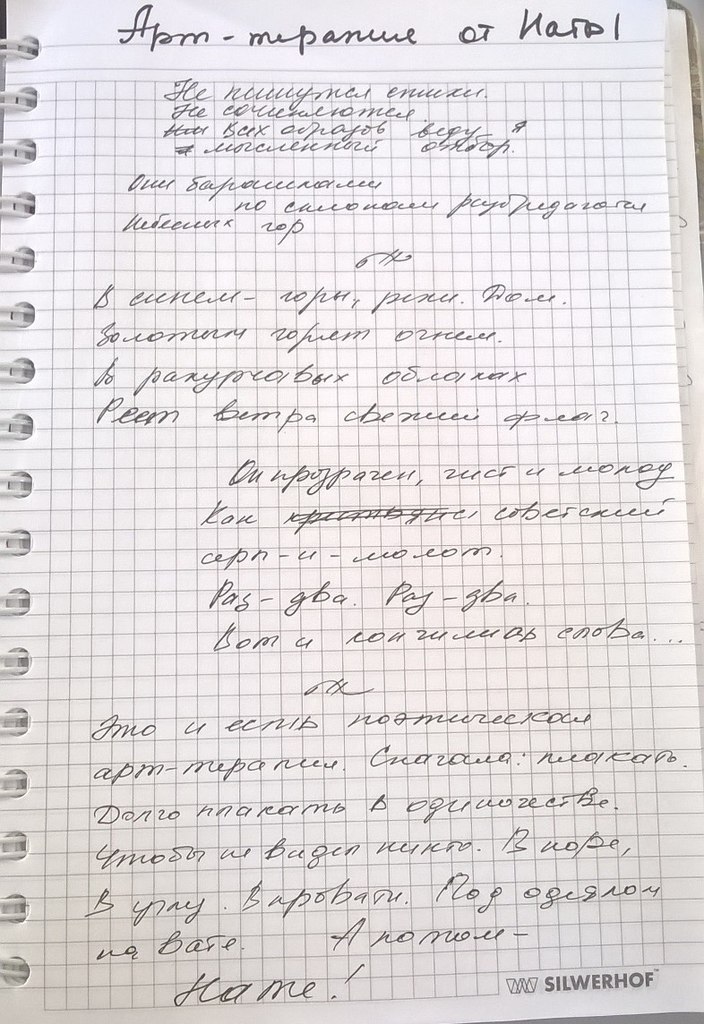 Арт-терапия от Наты
Не пишутся стихи.
Не сочиняются
Всех образов веду я
мысленный отбор.
Они барашками
по склонам разбредаются
Небесных гор
В синем - горы, реки. Дом.
Золотым горит огнем.
В ракурсавых облаках
Реет ветра свежий флаг.
Он прозрачен, чист и молод
Как советский
серп-и-молот.
Раз-два. Раз-два.
Вот и кончились слова...
Это и есть поэтическая
арт-терапия. Сначала: плакать.
Долго плакать в одиночестве.
Чтобы не видел никто. В норе,
В углу. В кровати. Под одеялом
на вате. А потом -
Нате!
SILWERHOF